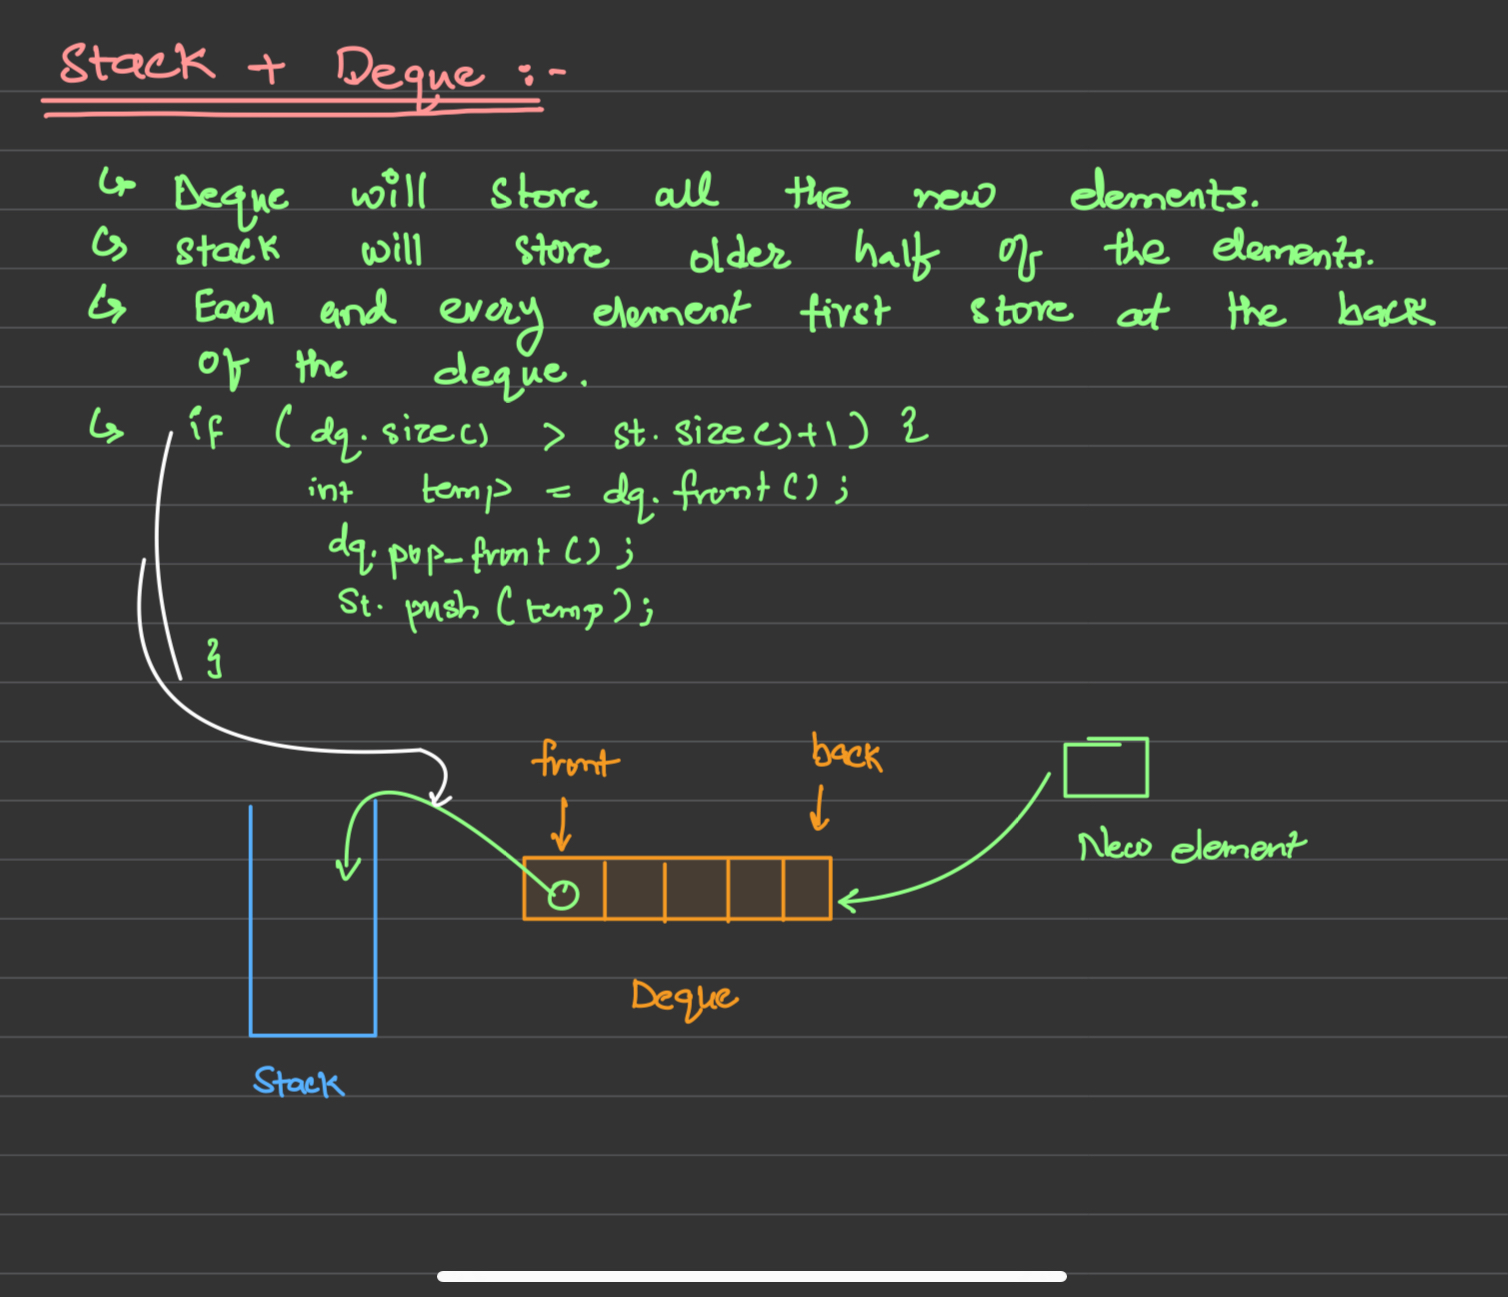 Stack + Deque :-
↳ Deque will store all the new elements.
↳ stack will store older half of the elements.
↳ Each and every element first store at the back
of the deque.
↳ if ( dq.size() > st.size()+1 ) {
int temp = dq.front();
dq.pop_front();
St.push(temp);
}
front
back
New element
Deque
Stack